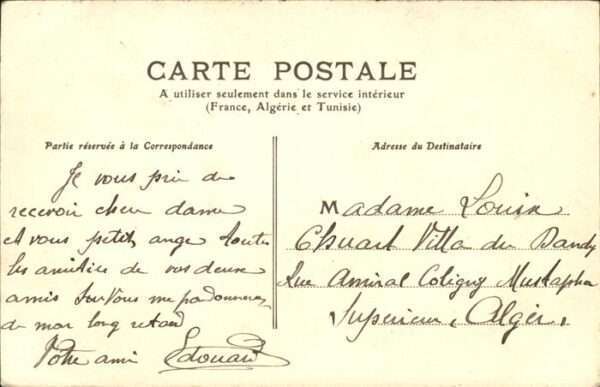 CARTE POSTALE
A utiliser seulement dans le service intérieur
(France, Algérie et Tunisie)
Partie réservée à la Correspondance
Adresse du Destinataire
Je vous prie de
recevoir chère dame
et vous petit ange toutes
les amitiés de vos deux
amis Vous me pardonnerez
de mon long retard
Votre ami Edouard
Madame Louise
Villa du Dandy
Rue Amiral Coligny Mustapha
Supérieur, Alger,